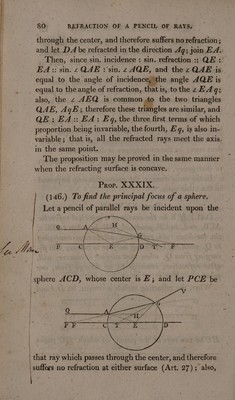 60 REFRACTION OF A PENCIL OF RAYS.
through the center, and therefore suffers no refraction;
and let DA be refracted in the direction Aq; join EA.
Then, since sin. incidence : sin. refraction :: QE :
EA :: sin. ∠ QAE : sin. ∠ AQE, and the ∠ QAE is
equal to the angle of incidence, the angle AQE is
equal to the angle of refraction, that is, to the ∠ EAq;
also, the ∠ AEQ is common to the two triangles
QAE, AqE; therefore these triangles are similar, and
QE : EA :: EA : Eq, the three first terms of which
proportion being invariable, the fourth, Eq, is also in-
variable; that is, all the refracted rays meet the axis
in the same point.
The proposition may be proved in the same manner
when the refracting surface is concave.
PROP. XXXIX.
(146.) To find the principal focus of a sphere.
Let a pencil of parallel rays be incident upon the
Q A H
G
P C E D T F
sphere ACD, whose center is E; and let PCE be
V
Q A G
H
P F C T E D
that ray which passes through the center, and therefore
suffers no refraction at either surface (Art. 27); also,